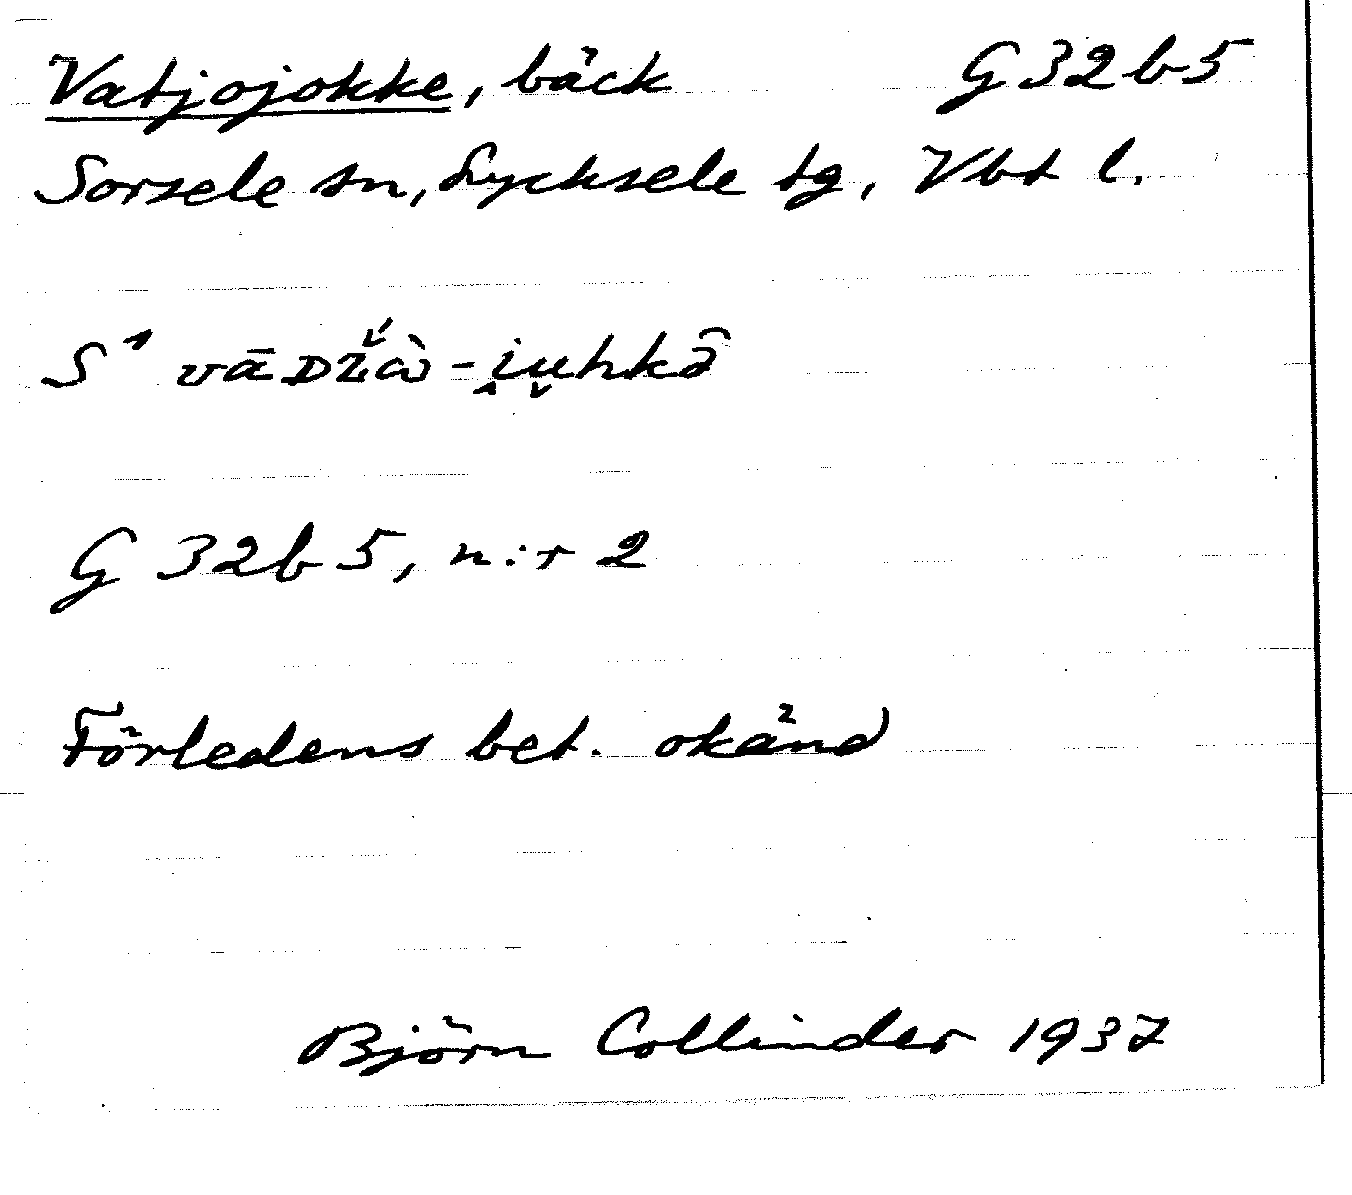 Vatjojokke, bäck G 32 b 5
Sorsele sn, Lycksele tg, Vbt l.
S¹ vāᴅž́ὼ-i̭u̯hkə̑
G 32 b 5, n:r 2
Förledens bet. okänd
Björn Collinder 1937